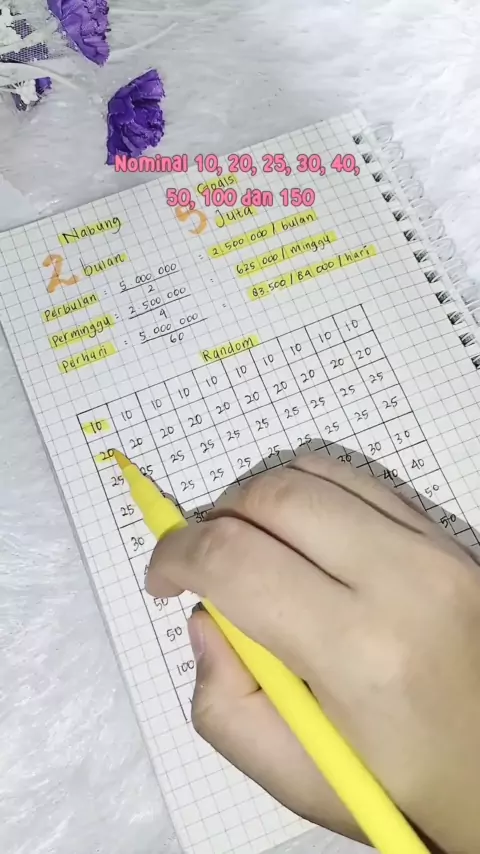 Nominal 10, 20, 25, 30, 40,
50, 100 dan 150
Goals
Nabung 5 Juta
2 bulan
Perbulan : 5 000 000 / 2 = 2.500 000 / bulan
Perminggu : 2 500 000 / 4 = 625 000 / minggu
Perhari : 5 000 000 / 60 = 83 500 / 84 000 / hari
Random
10 10 10 10 10 10 10 10 10 10
20 20 20 20 20 20 20 20 20 20
25 25 25 25 25 25 25 25 25 25
25 25 25 25
30 30 30 30 30
40 40
50 50
50 50
100